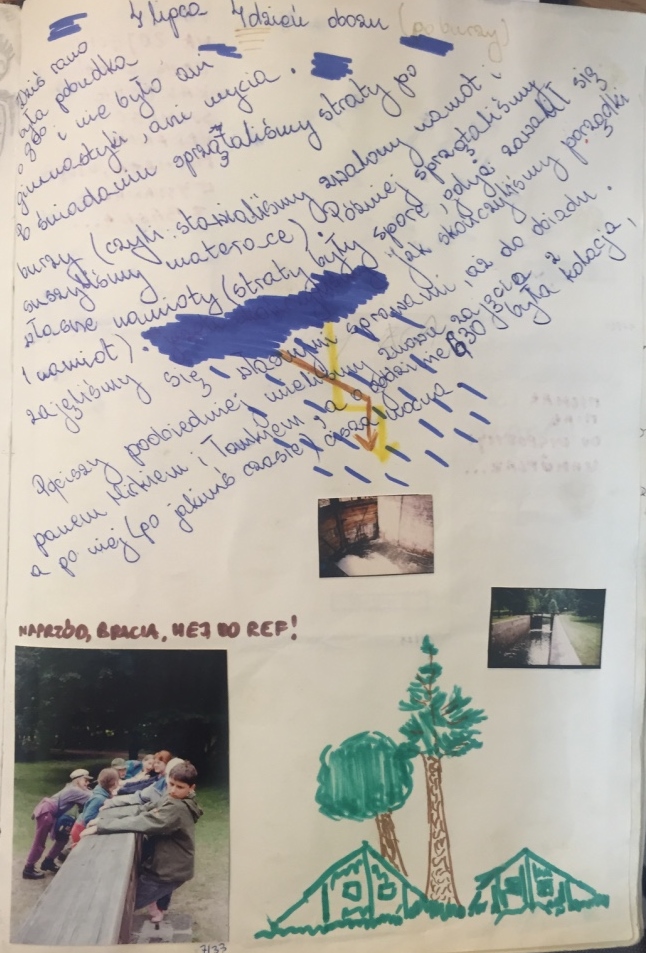 4 lipca 4 dzień obozu (po burzy)
Dziś rano
była pobudka
o 9:00 i nie było ani
gimnastyki, ani mycia.
Po śniadaniu sprzątaliśmy straty po
burzy (czyli: stawialiśmy zwalony namiot i
suszyliśmy materace). Później sprzątaliśmy
własne namioty (straty były spore, gdyż zawalił się
1 namiot). Jak skończyliśmy porządki
zajęliśmy się własnymi sprawami, aż do obiadu.
Po ciszy poobiedniej mieliśmy zajęcia z
panem Mirkiem i Tomkiem, a o godzinie 630 była kolacja,
a po niej (po jakimś czasie) cisza nocna
NAPRZÓD, BRACIA, HEJ DO REF!
7/33